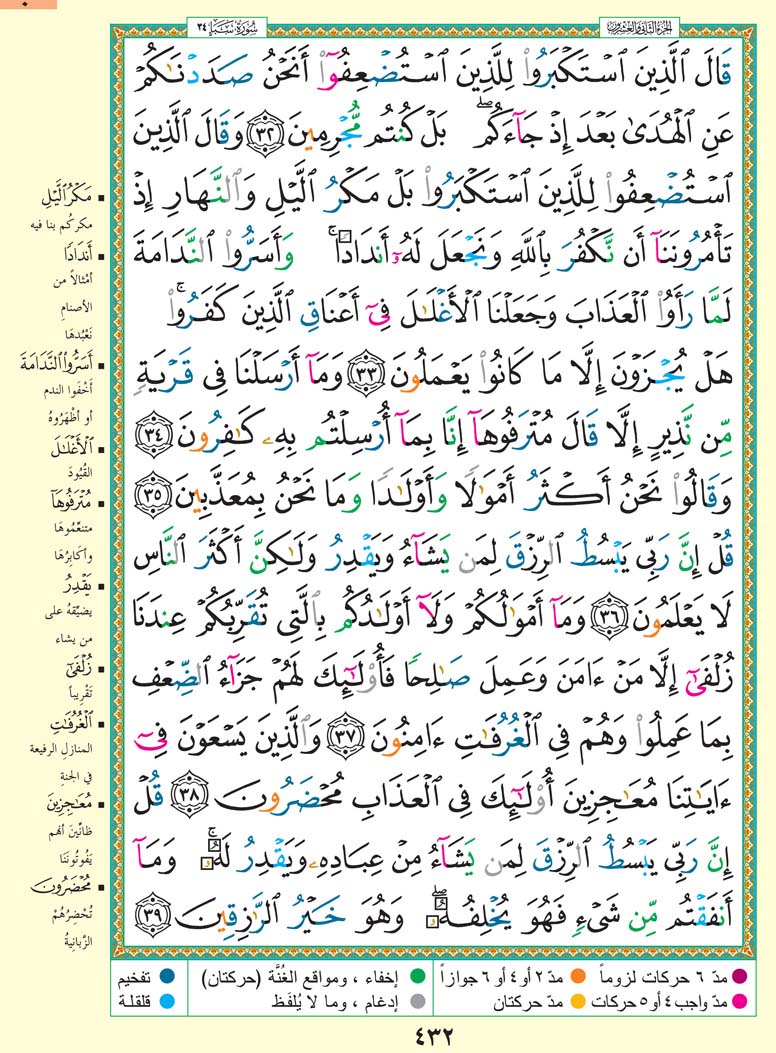 الجزء الثاني والعشرون
سُورَةُ سَبَإٍ ٣٤
قَالَ ٱلَّذِينَ ٱسْتَكْبَرُوا۟ لِلَّذِينَ ٱسْتُضْعِفُوٓا۟ أَنَحْنُ صَدَدْنَٰكُمْ
عَنِ ٱلْهُدَىٰ بَعْدَ إِذْ جَآءَكُم ۖ بَلْ كُنتُم مُّجْرِمِينَ ٣٢ وَقَالَ ٱلَّذِينَ
ٱسْتُضْعِفُوا۟ لِلَّذِينَ ٱسْتَكْبَرُوا۟ بَلْ مَكْرُ ٱلَّيْلِ وَٱلنَّهَارِ إِذْ
تَأْمُرُونَنَآ أَن نَّكْفُرَ بِٱللَّهِ وَنَجْعَلَ لَهُۥٓ أَندَادًا ۚ وَأَسَرُّوا۟ ٱلنَّدَامَةَ
لَمَّا رَأَوُا۟ ٱلْعَذَابَ وَجَعَلْنَا ٱلْأَغْلَٰلَ فِىٓ أَعْنَاقِ ٱلَّذِينَ كَفَرُوا۟ ۚ
هَلْ يُجْزَوْنَ إِلَّا مَا كَانُوا۟ يَعْمَلُونَ ٣٣ وَمَآ أَرْسَلْنَا فِى قَرْيَةٍ
مِّن نَّذِيرٍ إِلَّا قَالَ مُتْرَفُوهَآ إِنَّا بِمَآ أُرْسِلْتُم بِهِۦ كَٰفِرُونَ ٣٤
وَقَالُوا۟ نَحْنُ أَكْثَرُ أَمْوَٰلًا وَأَوْلَٰدًا وَمَا نَحْنُ بِمُعَذَّبِينَ ٣٥
قُلْ إِنَّ رَبِّى يَبْسُطُ ٱلرِّزْقَ لِمَن يَشَآءُ وَيَقْدِرُ وَلَٰكِنَّ أَكْثَرَ ٱلنَّاسِ
لَا يَعْلَمُونَ ٣٦ وَمَآ أَمْوَٰلُكُمْ وَلَآ أَوْلَٰدُكُم بِٱلَّتِى تُقَرِّبُكُمْ عِندَنَا
زُلْفَىٰٓ إِلَّا مَنْ ءَامَنَ وَعَمِلَ صَٰلِحًا فَأُو۟لَٰٓئِكَ لَهُمْ جَزَآءُ ٱلضِّعْفِ
بِمَا عَمِلُوا۟ وَهُمْ فِى ٱلْغُرُفَٰتِ ءَامِنُونَ ٣٧ وَٱلَّذِينَ يَسْعَوْنَ فِىٓ
ءَايَٰتِنَا مُعَٰجِزِينَ أُو۟لَٰٓئِكَ فِى ٱلْعَذَابِ مُحْضَرُونَ ٣٨ قُلْ
إِنَّ رَبِّى يَبْسُطُ ٱلرِّزْقَ لِمَن يَشَآءُ مِنْ عِبَادِهِۦ وَيَقْدِرُ لَهُۥ ۚ وَمَآ
أَنفَقْتُم مِّن شَىْءٍ فَهُوَ يُخْلِفُهُۥ ۖ وَهُوَ خَيْرُ ٱلرَّٰزِقِينَ ٣٩
▪ مَكْرُ ٱلَّيْلِ
مكركُم بنا فيه
▪ أَندَادًا
أمْثالاً من
الأصنامِ
نَعْبُدهَا
▪ أَسَرُّوا۟ ٱلنَّدَامَةَ
أخْفَوا الندم
أو أظْهَرُوهُ
▪ ٱلْأَغْلَٰلَ
القُيُودَ
▪ مُتْرَفُوهَآ
متنعِّمُوهَا
وأكابِرُهَا
▪ يَقْدِرُ
يضيِّقُهُ على
من يشاء
▪ زُلْفَىٰٓ
تَقْرِيباً
▪ ٱلْغُرُفَٰتِ
المنازلِ الرفيعة
في الجنةِ
▪ مُعَٰجِزِينَ
ظانِّينَ أنهم
يَفُوتُونَنَا
▪ مُحْضَرُونَ
تُحْضِرُهُمُ
الزَّبانِيةُ
مدّ ٦ حركات لزوماً
مدّ ٢ أو ٤ أو ٦ جوازاً
إخفاء ، ومواقع الغُنَّة (حركتان)
تفخيم
مدّ واجب ٤ أو ٥ حركات
مدّ حركتان
إدغام ، وما لا يُلفَظ
قلقلة
٤٣٢